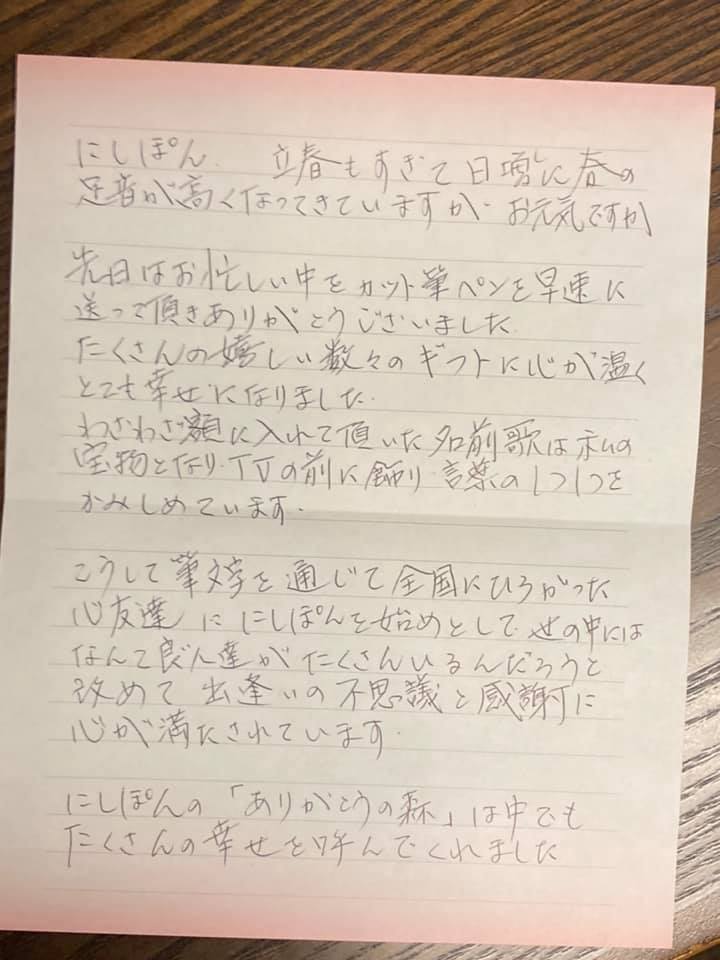 にしぽん. 立春もすぎて日増しに春の
足音が高くなってきていますが・お元気ですか
先日はお忙しい中をカット筆ペンを早速に
送って頂きありがとうございました.
たくさんの嬉しい数々のギフトに心が温く
とても幸せになりました.
わざわざ額に入れて頂いた名前歌は私の
宝物となり・TVの前に飾り・言葉の1つ1つを
かみしめています.
こうして筆文字を通じて全国にひろがった
心友達に にしぽんを始めとして・世の中には
なんて良い人達がたくさんいるんだろうと
改めて 出逢いの不思議と感謝に
心が満たされています.
にしぽんの「ありがとうの森」は中でも
たくさんの幸せを呼んでくれました